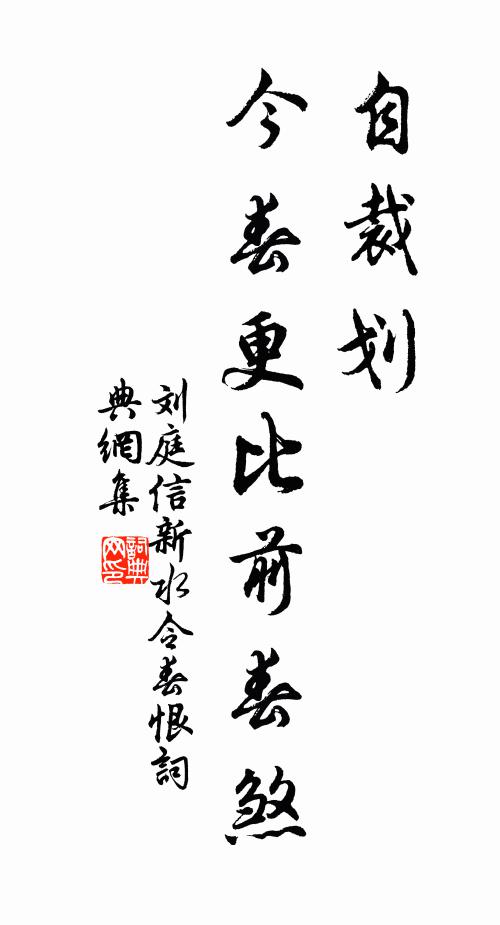 自裁划
今春更比前春煞
刘庭信新水令春恨詞
典網集
詞典
网印